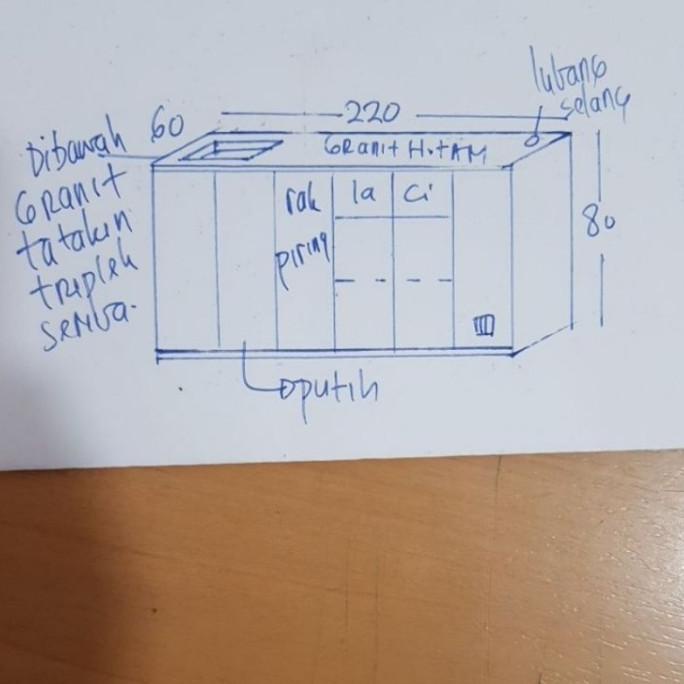 lubang
selang
60
220
Dibawah
GRanit
tatakan
triplek
semua.
GRanit HitAM
rak
piring
la ci
80
oputih